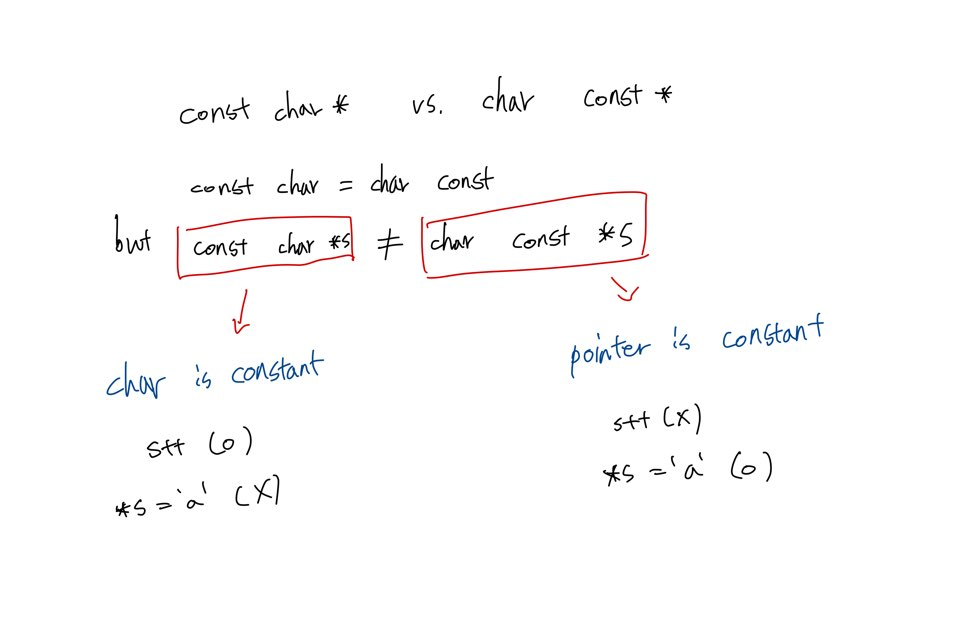 const char * vs. char const *
const char = char const
but const char *s ≠ char const *s
char is constant
pointer is constant
s++ (o)
s++ (x)
*s = 'a' (X)
*s = 'a' (o)